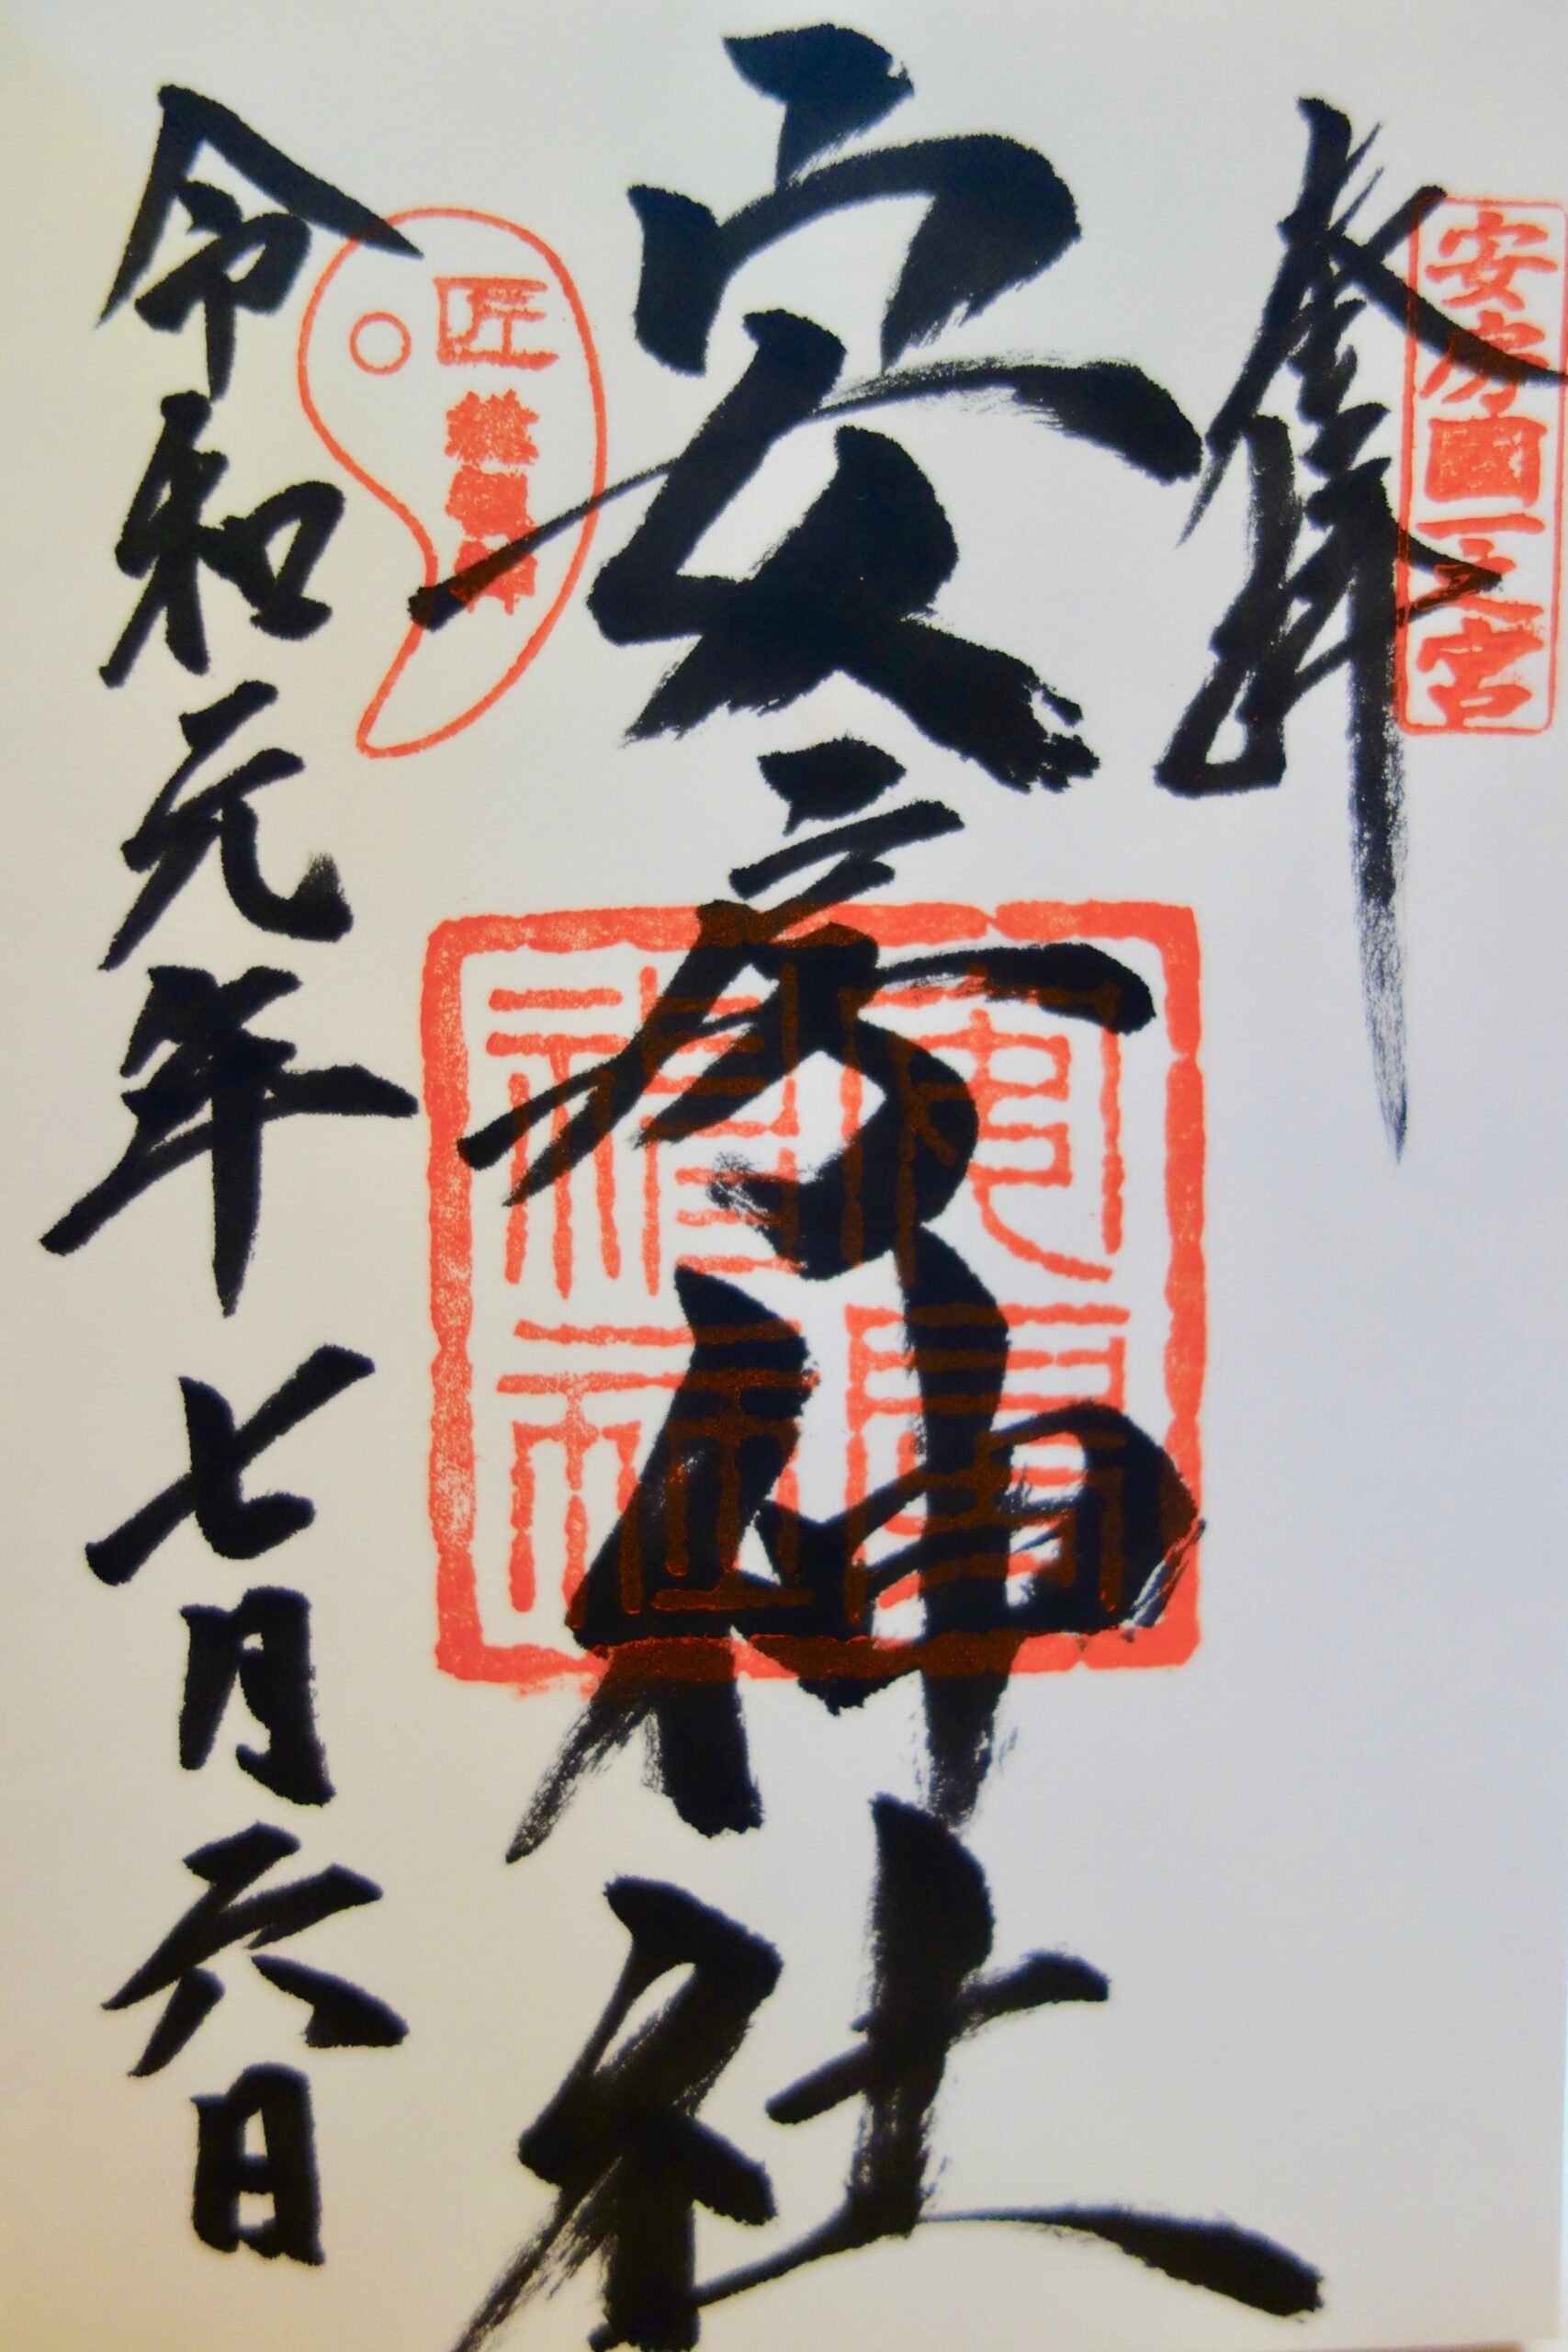 安房國一之宮
奉拝
安房神社
安房神社
匠
令和元年七月六日